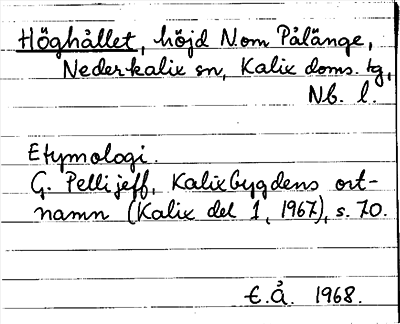 Höghållet, höjd N om Pålänge,
Nederkalix sn, Kalix doms. tg,
Nb. l.
Etymologi.
G. Pellijeff, Kalixbygdens ort-
namn (Kalix del 1, 1967), s. 70.
E.Å. 1968.